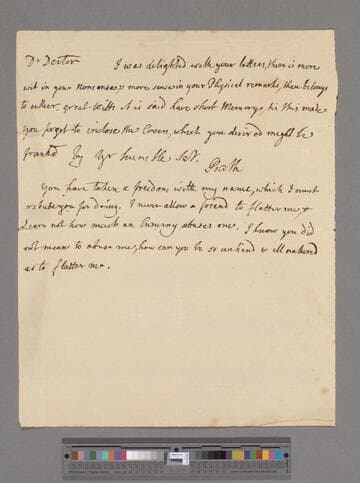 Dr Doctor I was delighted with your letters, there is more
wit in your nonsense, & more sense in your Physical remarks, then belongs
to either. great Witts it is said have short Memorys, tis this made
you forgot to inclose the Covers, which you desired might be
frankd by yr humble Sert.
Bath
You have taken a freedom with my name, which I must
rebuke you for doing. I never allow a friend to flatter me, &
I care not how much an Ennemy abuses one. I know you did
not mean to abuse me, how can you be so unkind & ill natured
as to flatter me.